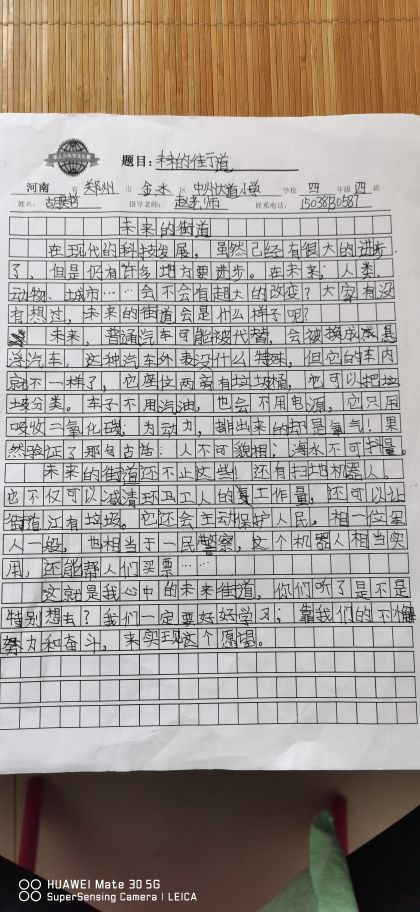 题目：未来的街道
河南 省 郑州 市 金水 区 中州大道小学 学校 四 年级 四 班
姓名： 指导老师： 赵老师 联系电话：
未来的街道
在现代的科技发展，虽然己经有很大的进步
了，但是仍有许多地方要进步。在未来，人类、
动物、城市……会不会有超大的改变？大家有没
有想过，未来的街道会是什么样子呢？
未来，普通汽车可能被代替，会被换成悬
浮汽车，这种汽车外表没什么特殊，但它的车内
就不一样了，它座位两旁有垃圾道，也可以把垃
圾分类。车子不用汽油，也会不用电源，它只用
吸收二氧化碳；为动力，排出来的却是氧气！果
然验证了那句古话：人不可貌相；海水不可斗量。
未来的街道还不止这些！还有扫地机器人，
也不仅可以减清环卫工人的工作量，还可以让
街道没有垃圾。它还会主动保护人民。相一位军
人一般，也相当于一民警察，这个机器人相当实
用，还能帮人们买票……
这就是我心中的未来街道，你们听了是不是
特别想去？我们一定要好好学习；靠我们的不懈
努力和奋斗，来实现这个愿望。
HUAWEI Mate 30 5G
SuperSensing Camera | LEICA